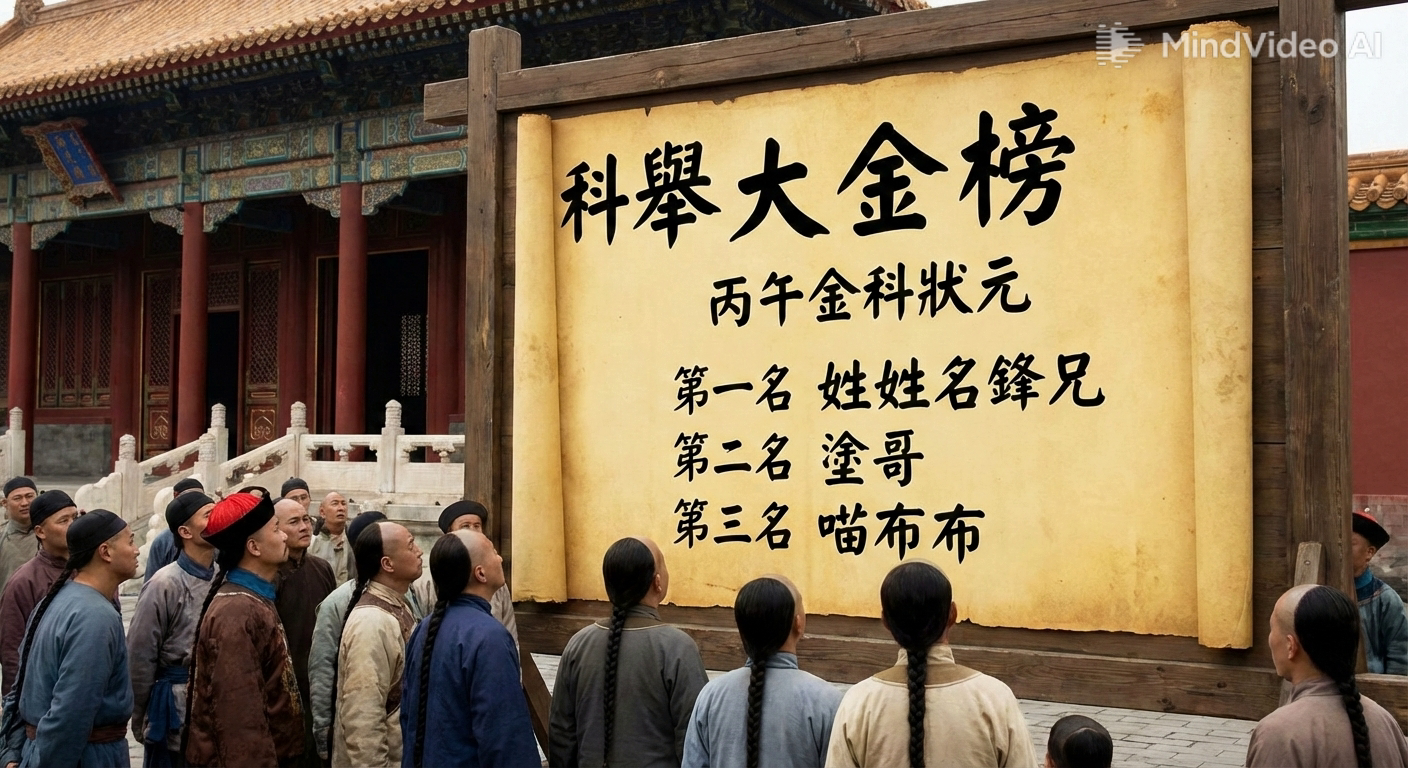 MindVideo AI
科舉大金榜
丙午金科狀元
第一名 姓姓名鋒兄
第二名 塗哥
第三名 喵布布